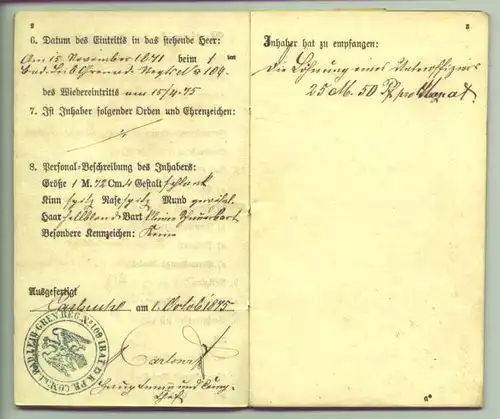 2
6. Datum des Eintritts in das stehende Heer:
Am 15. November 1871 beim 1ten
Bad. Leib Grenad. Regt. No 109.
des Wiedereintritts am 15/4. 75
7. Ist Inhaber folgender Orden und Ehrenzeichen:
8. Personal-Beschreibung des Inhabers:
Größe 1 M. 72 Cm. 4 Gestalt schlank
Kinn spitz Nase spitz Mund gewöhnl.
Haar hellblond Bart kleiner Schnurrbart
Besondere Kennzeichen: Keine
Ausgefertigt
Carlsruhe am 1. October 1875
Hauptmann und Comp.
Chef
3
Inhaber hat zu empfangen:
Die Löhnung eines Unteroffiziers
25 M. 50 Pf. pro Monat.